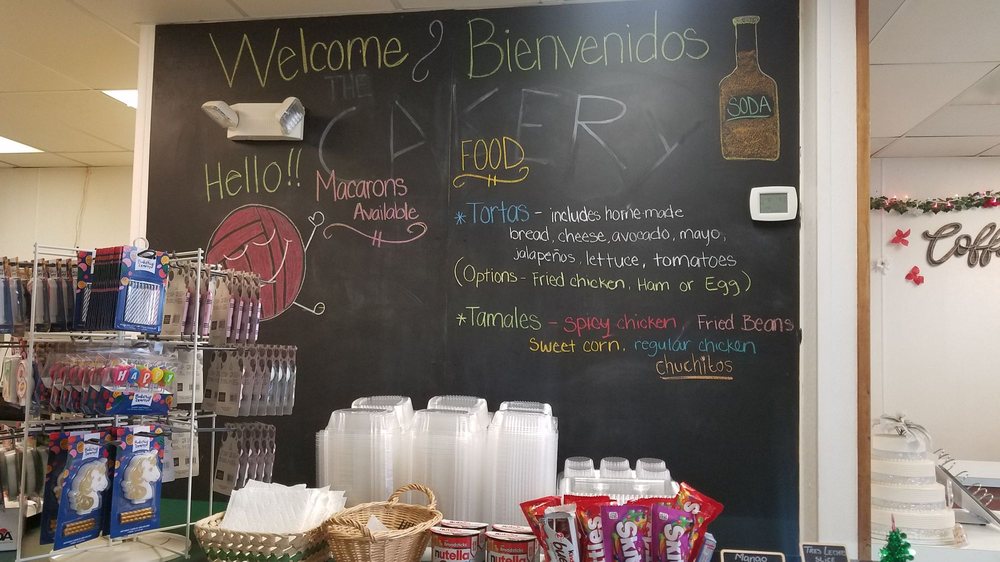 Welcome & Bienvenidos
THE
CAKERY
SODA
Hello!!
Macarons
Available
FOOD
*Tortas - includes home-made
bread, cheese, avocado, mayo,
jalapeños, lettuce, tomatoes
(Options - Fried chicken, Ham or Egg)
*Tamales - spicy chicken, Fried Beans
sweet corn, regular chicken
chuchitos
Coffe
HAPPY
nutella
nutella
Skittles
Mango
Tres Leches
Slice